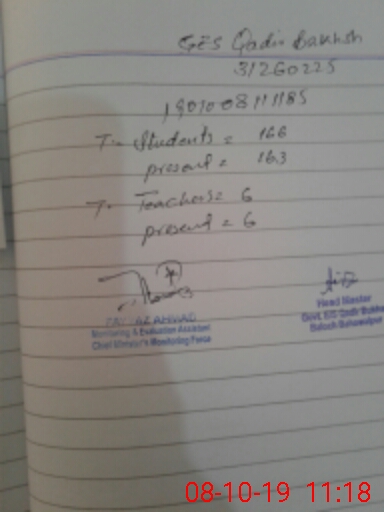 GES Qadir Bakhsh
31260225
T. Students = 166
present = 163
T. Teachers = 6
present = 6
Monitoring & Evaluation Assistant
Chief Minister's Monitoring Force
Head Master
Govt. E/S Qadir Bakhsh
Baloch Bahawalpur
08-10-19 11:18